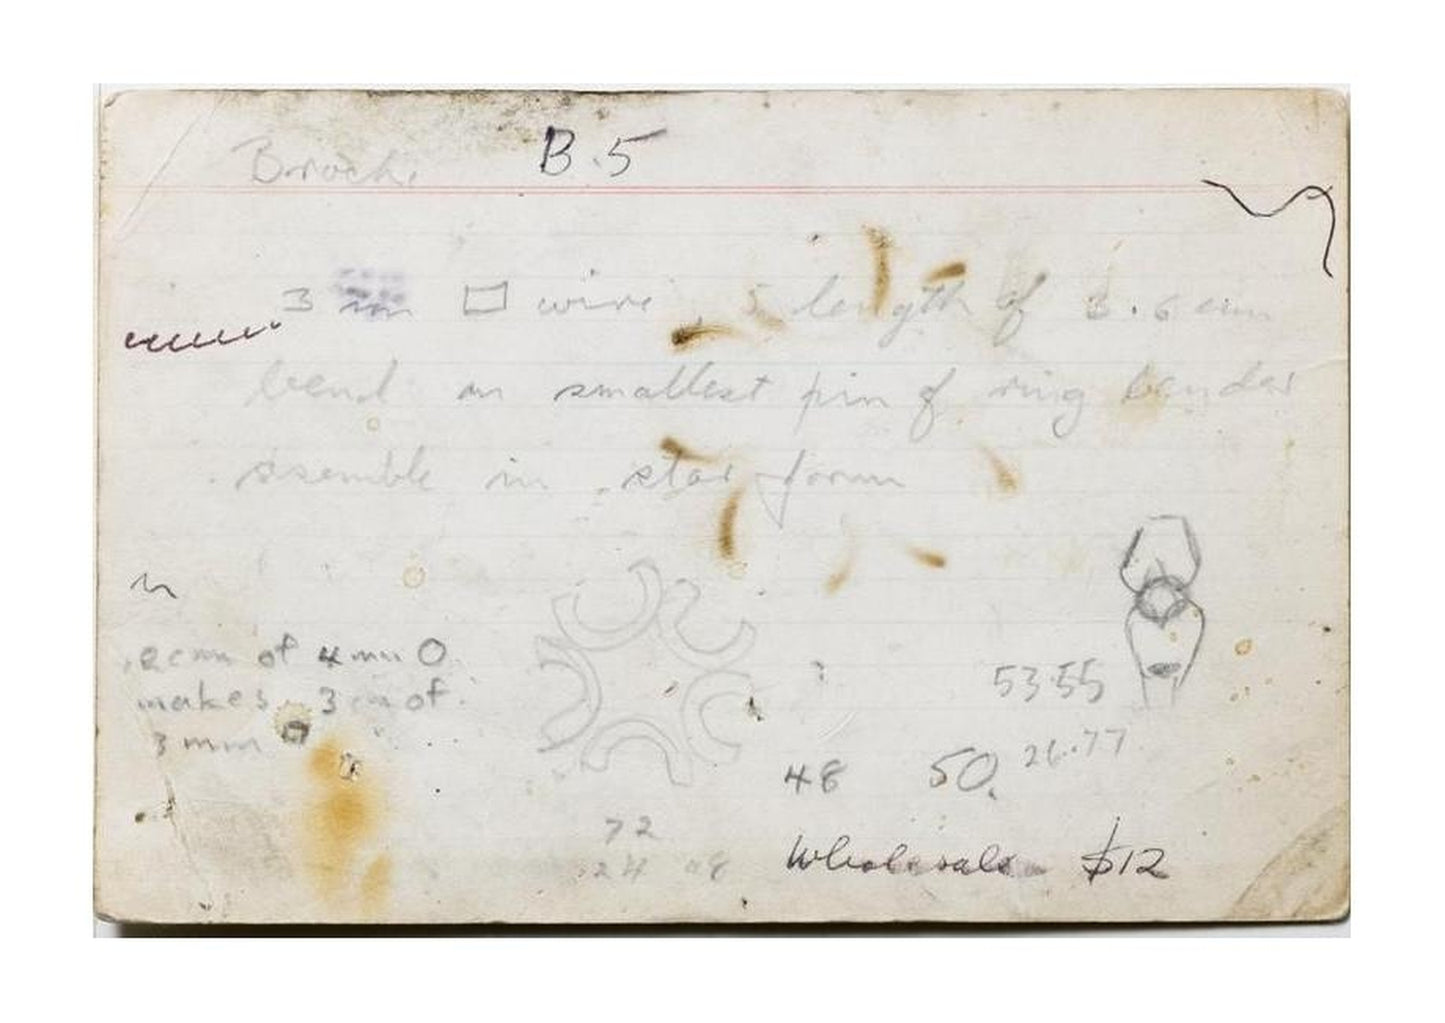 Broch. B.5
3 □ wire, 5 length of 3.6 cm
bend on smallest pin of ring bender
assemble in star form
2cm of 4 mm O
makes 3 cm of
3 mm □
53.55
48 50. 26.77
72
24 48
Wholesale $12